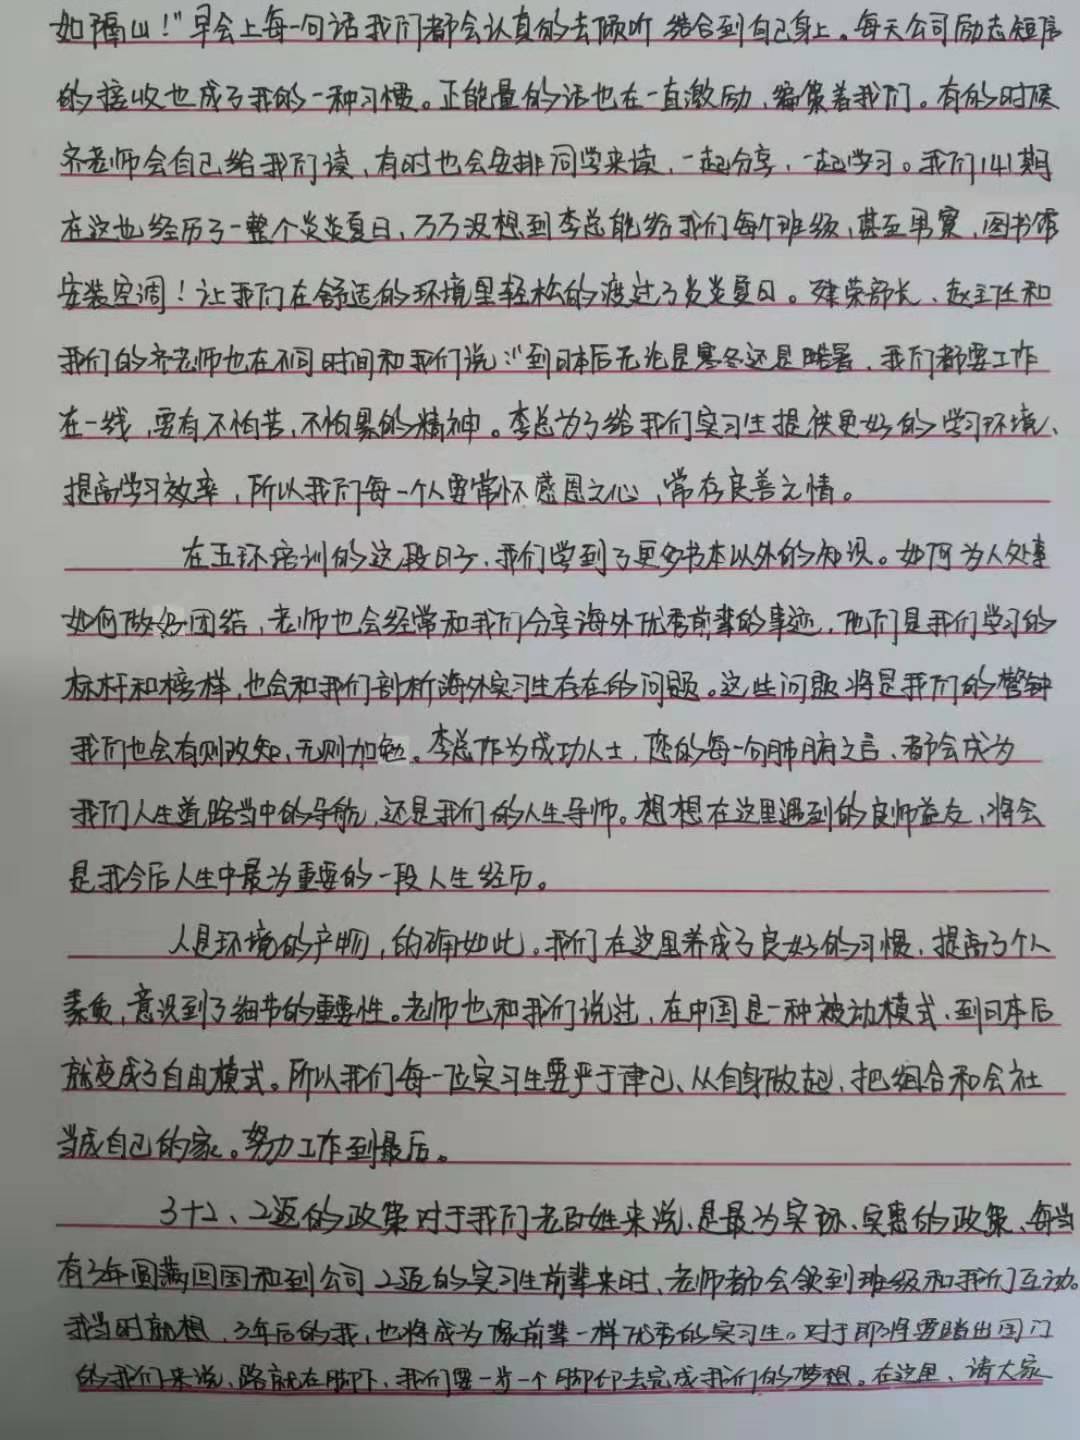 如隔山！"早会上每一句话我们都会认真的去倾听 结合到自己身上。每天公司励志短信
的接收也成了我的一种习惯。正能量的话也在一直激励、鞭策着我们。有的时候
齐老师会自己给我们读，有时也会安排同学来读，一起分享，一起学习。我们141期
在这也经历了一整个炎炎夏日，万万没想到李总能给我们每个班级，甚至男寝，图书馆
安装空调！让我们在舒适的环境里轻松的渡过了炎炎夏日。建荣部长、赵主任和
我们的齐老师也在不同时间和我们说："到日本后无论是寒冬还是酷暑，我们都要工作
在一线，要有不怕苦，不怕累的精神。李总为了给我们实习生提供更好的学习环境、
提高学习效率，所以我们每一个人要常怀感恩之心，常存良善之情。
在五环培训的这段日子，我们学到了更多书本以外的知识。如何为人处事
如何做好团结，老师也会经常和我们分享海外优秀前辈的事迹，他们是我们学习的
标杆和榜样，也会和我们剖析海外实习生存在的问题。这些问题将是我们的警钟
我们也会有则改知、无则加勉。李总作为成功人士，您的每一句肺腑之言、都会成为
我们人生道路当中的导航，还是我们的人生导师。想想在这里遇到的良师益友，将会
是我今后人生中最为重要的一段人生经历。
人是环境的产物，的确如此。我们在这里养成了良好的习惯，提高了个人
素质，意识到了细节的重要性。老师也和我们说过，在中国是一种被动模式，到日本后
就变成了自由模式。所以我们每一位实习生要严于律己、从自身做起、把组合和会社
当成自己的家。努力工作到最后。
3+2、2返的政策对于我们老百姓来说、是最为实际、实惠的政策、每当
有3年圆满回国和到公司2返的实习生前辈来时，老师都会领到班级和我们互动。
我当时就想，3年后的我，也将成为像前辈一样优秀的实习生。对于即将要踏出国门
的我们来说、路就在脚下，我们要一步一个脚印去完成我们的梦想。在这里、请大家